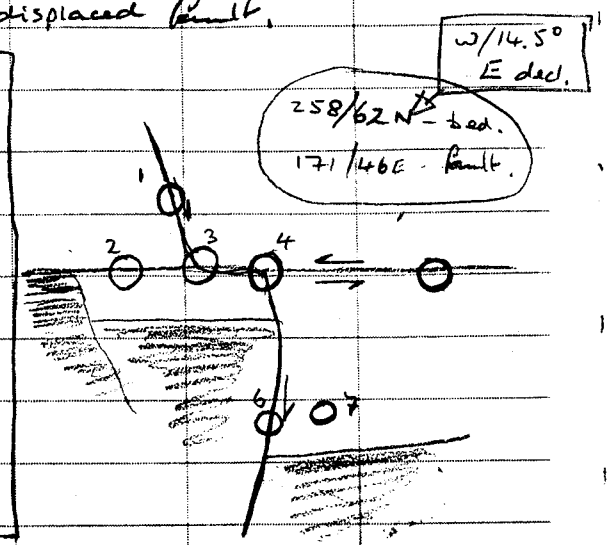 displaced fault.
w/14.5°
E decl.
258/62N - bed.
171/46E - fault.
1
2
3
4
6
7